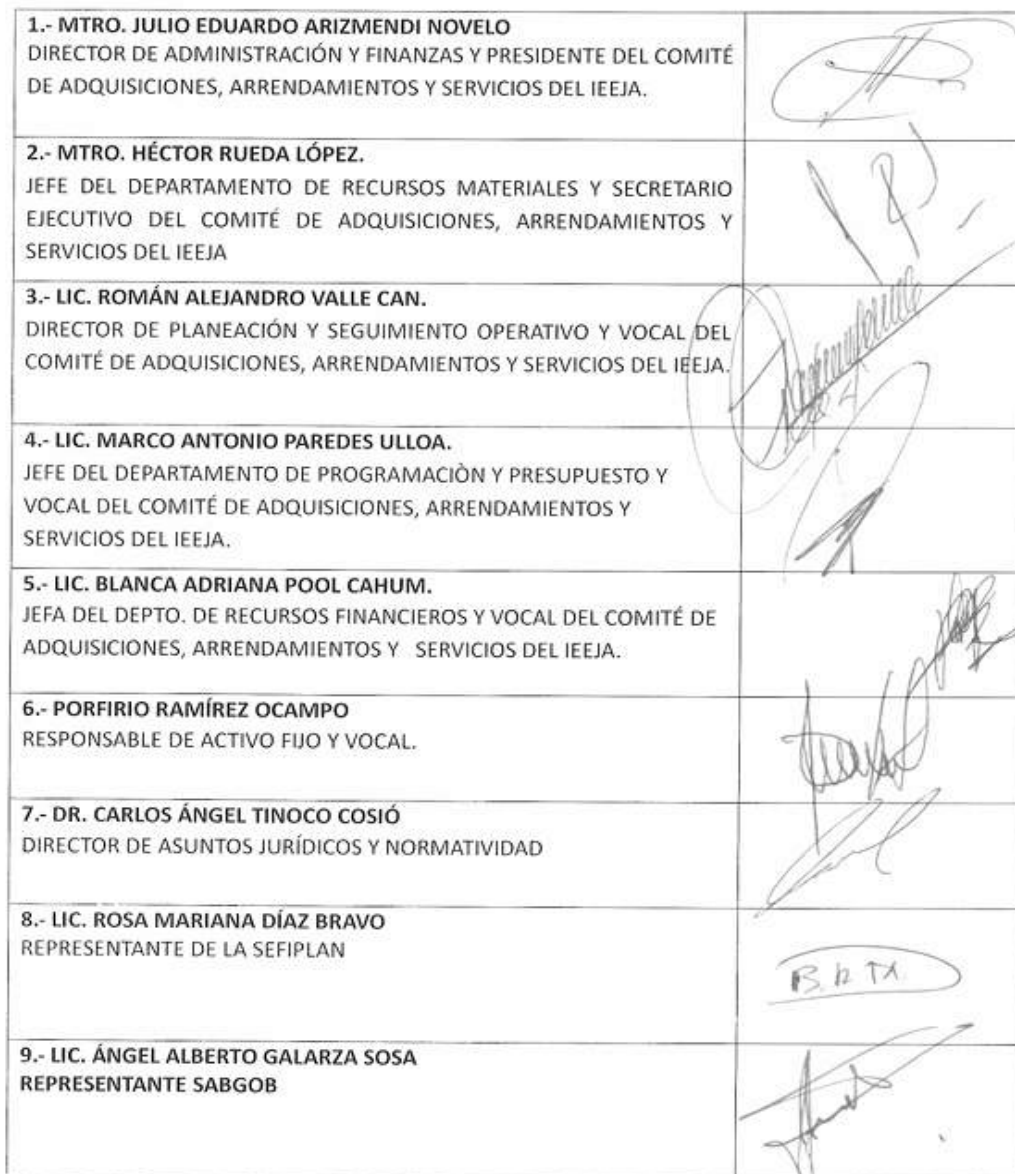 1.- MTRO. JULIO EDUARDO ARIZMENDI NOVELO
DIRECTOR DE ADMINISTRACIÓN Y FINANZAS Y PRESIDENTE DEL COMITÉ
DE ADQUISICIONES, ARRENDAMIENTOS Y SERVICIOS DEL IEEJA.
2.- MTRO. HÉCTOR RUEDA LÓPEZ.
JEFE DEL DEPARTAMENTO DE RECURSOS MATERIALES Y SECRETARIO
EJECUTIVO DEL COMITÉ DE ADQUISICIONES, ARRENDAMIENTOS Y
SERVICIOS DEL IEEJA
3.- LIC. ROMÁN ALEJANDRO VALLE CAN.
DIRECTOR DE PLANEACIÓN Y SEGUIMIENTO OPERATIVO Y VOCAL DEL
COMITÉ DE ADQUISICIONES, ARRENDAMIENTOS Y SERVICIOS DEL IEEJA.
4.- LIC. MARCO ANTONIO PAREDES ULLOA.
JEFE DEL DEPARTAMENTO DE PROGRAMACIÒN Y PRESUPUESTO Y
VOCAL DEL COMITÉ DE ADQUISICIONES, ARRENDAMIENTOS Y
SERVICIOS DEL IEEJA.
5.- LIC. BLANCA ADRIANA POOL CAHUM.
JEFA DEL DEPTO. DE RECURSOS FINANCIEROS Y VOCAL DEL COMITÉ DE
ADQUISICIONES, ARRENDAMIENTOS Y SERVICIOS DEL IEEJA.
6.- PORFIRIO RAMÍREZ OCAMPO
RESPONSABLE DE ACTIVO FIJO Y VOCAL.
7.- DR. CARLOS ÁNGEL TINOCO COSIÓ
DIRECTOR DE ASUNTOS JURÍDICOS Y NORMATIVIDAD
8.- LIC. ROSA MARIANA DÍAZ BRAVO
REPRESENTANTE DE LA SEFIPLAN
9.- LIC. ÁNGEL ALBERTO GALARZA SOSA
REPRESENTANTE SABGOB